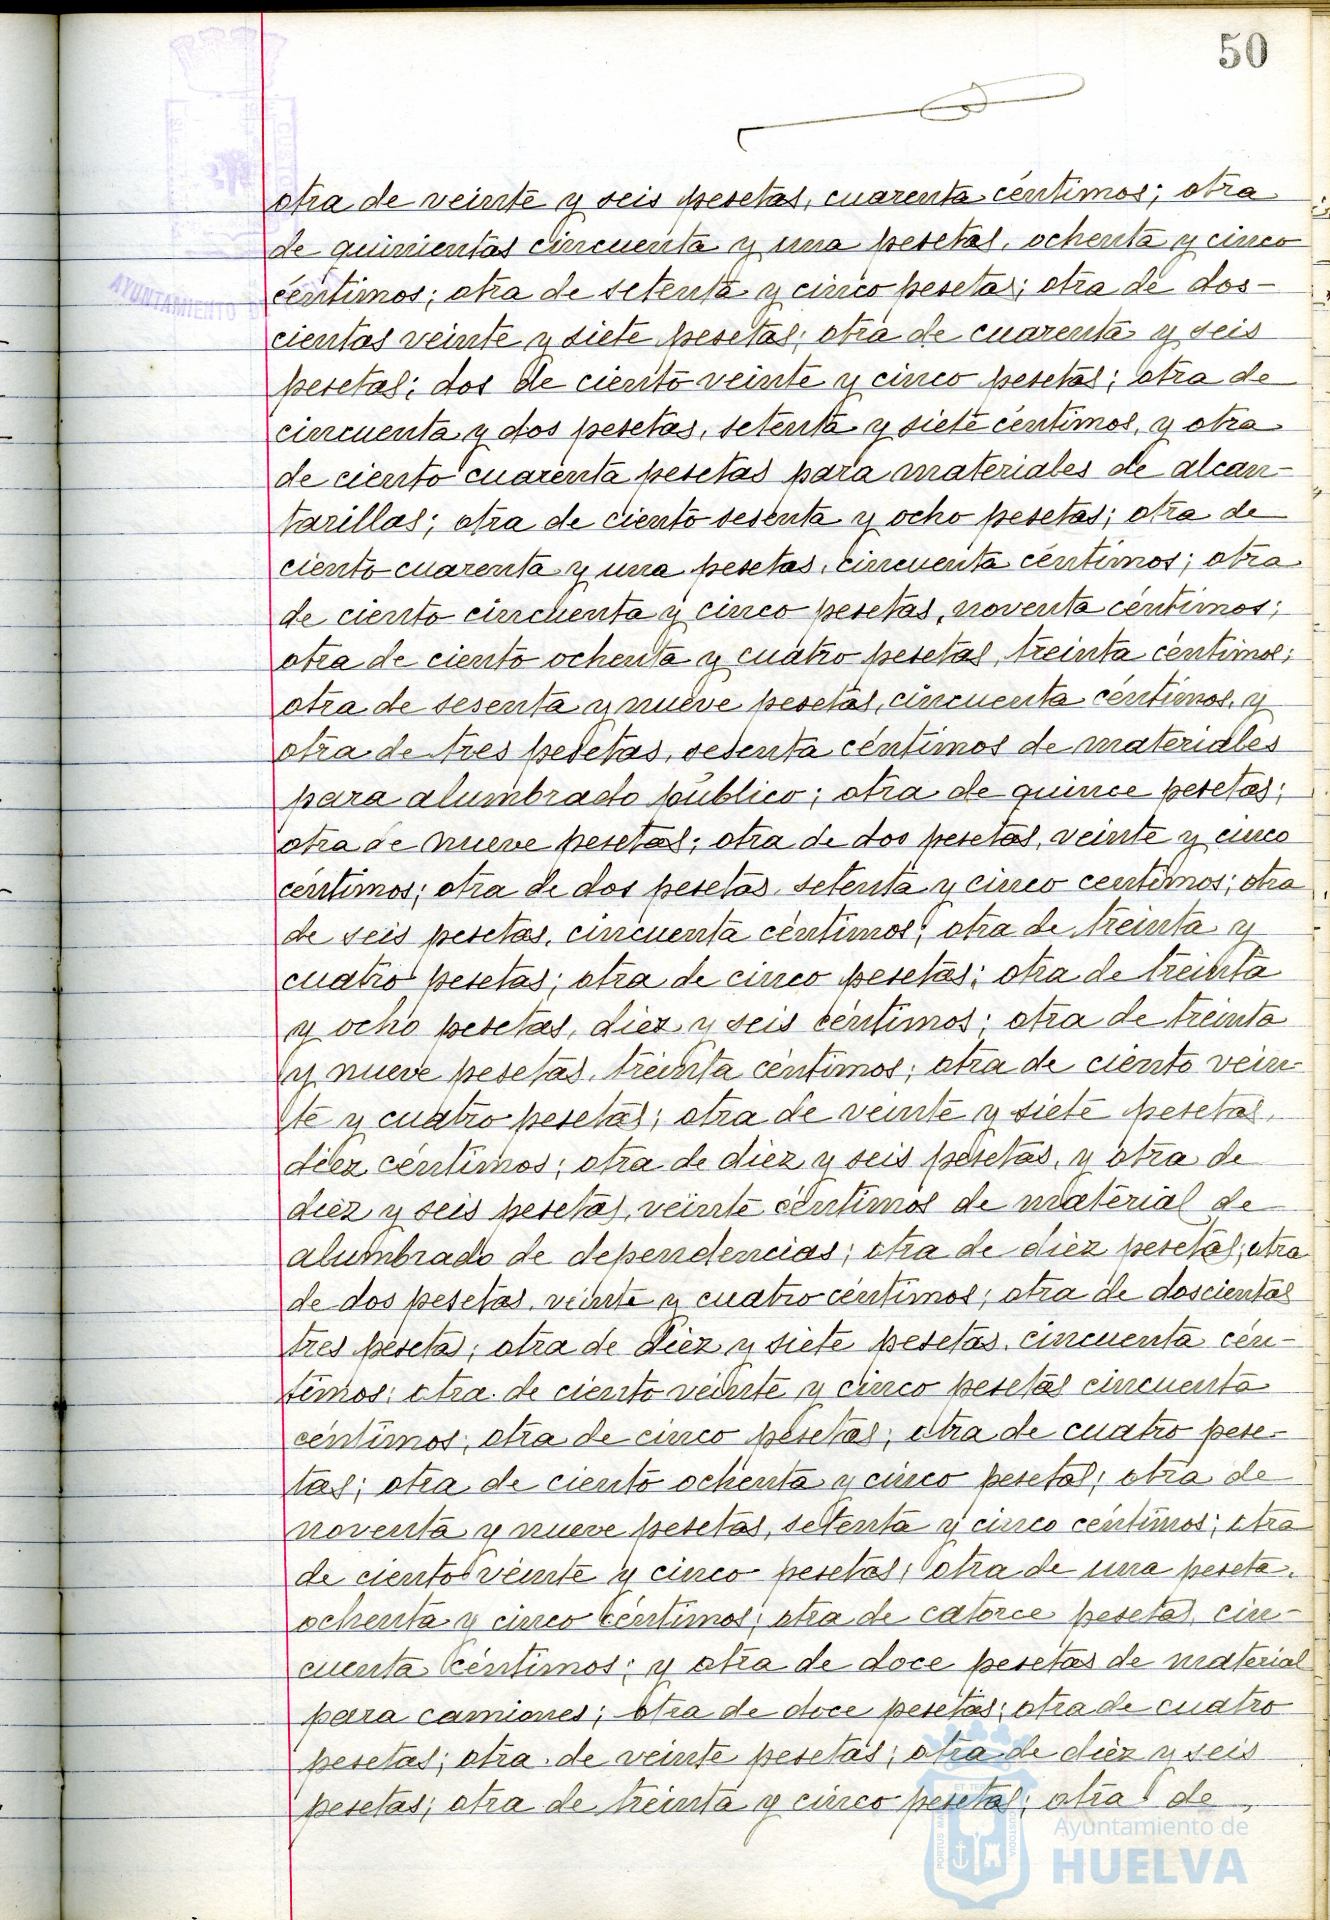 50
otra de veinte y seis pesetas, cuarenta céntimos; otra
de quinientas cincuenta y una pesetas, ochenta y cinco
céntimos; otra de setenta y cinco pesetas; otra de dos-
cientas veinte y siete pesetas; otra de cuarenta y seis
pesetas; dos de ciento veinte y cinco pesetas; otra de
cincuenta y dos pesetas, setenta y siete céntimos, y otra
de ciento cuarenta pesetas para materiales de alcan-
tarillas; otra de ciento sesenta y ocho pesetas; otra de
ciento cuarenta y una pesetas, cincuenta céntimos; otra
de ciento cincuenta y cinco pesetas, noventa céntimos;
otra de ciento ochenta y cuatro pesetas, treinta céntimos;
otra de sesenta y nueve pesetas, cincuenta céntimos, y
otra de tres pesetas, sesenta céntimos de materiales
para alumbrado público; otra de quince pesetas;
otra de nueve pesetas; otra de dos pesetas, veinte y cinco
céntimos; otra de dos pesetas, setenta y cinco centimos; otra
de seis pesetas, cincuenta céntimos; otra de treinta y
cuatro pesetas; otra de cinco pesetas; otra de treinta
y ocho pesetas, diez y seis céntimos; otra de treinta
y nueve pesetas, treinta céntimos; otra de ciento vein-
te y cuatro pesetas; otra de veinte y siete pesetas,
diez céntimos; otra de diez y seis pesetas, y otra de
diez y seis pesetas, veinte céntimos de material de
alumbrado de dependencias; otra de diez pesetas; otra
de dos pesetas, veinte y cuatro céntimos; otra de doscientas
tres peseta; otra de diez y siete pesetas, cincuenta cén-
timos; otra de ciento veinte y cinco pesetas cincuenta
céntimos; otra de cinco pesetas; otra de cuatro pese-
tas; otra de ciento ochenta y cinco pesetas; otra de
noventa y nueve pesetas, setenta y cinco céntimos; otra
de ciento veinte y cinco pesetas; otra de una peseta,
ochenta y cinco céntimos; otra de catorce pesetas, cin-
cuenta céntimos; y otra de doce pesetas de material
para camiones; otra de doce pesetas; otra de cuatro
pesetas; otra de veinte pesetas; otra de diez y seis
pesetas; otra de treinta y cinco pesetas; otra de
AYUNTAMIENTO DE
Ayuntamiento de
HUELVA